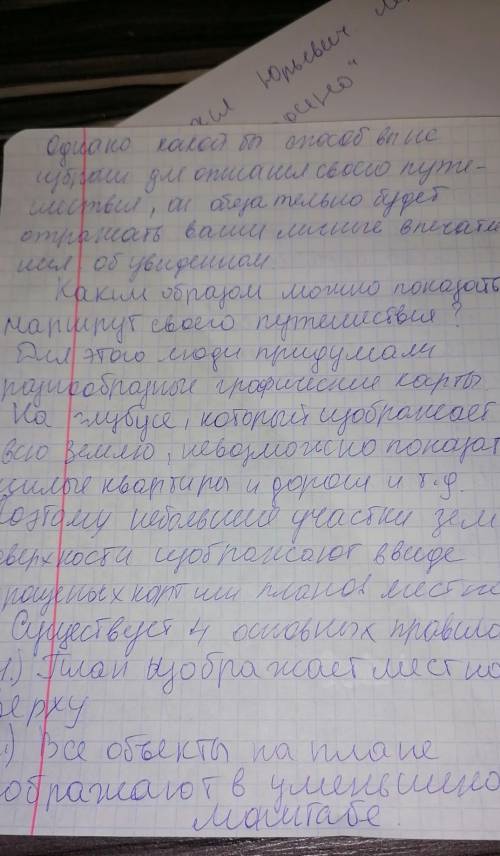 Юрьевич
Однако какой бы способ вы не
избрали для описания своего путе-
шествия, он обязательно будет
отражать ваши личные впечатле
ния об увиденном.
Каким образом можно показать
маршрут своего путешиствия?
Для этого люди придумали
разнообразные графические карты.
На глубусе, который изображает
всю землю, невозможно показат
жилые квартиры и дороги и т.д.
Поэтому небольшие участки зем
оверхности изображают ввиде
карт или планов местно
Существует 4 основных правила
1.) План изображает местно
верху
.) Все объекты на плане
ображают в уменьшено
маштабе.